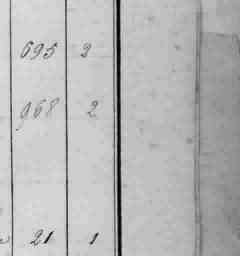 695 2
968 2
21 1